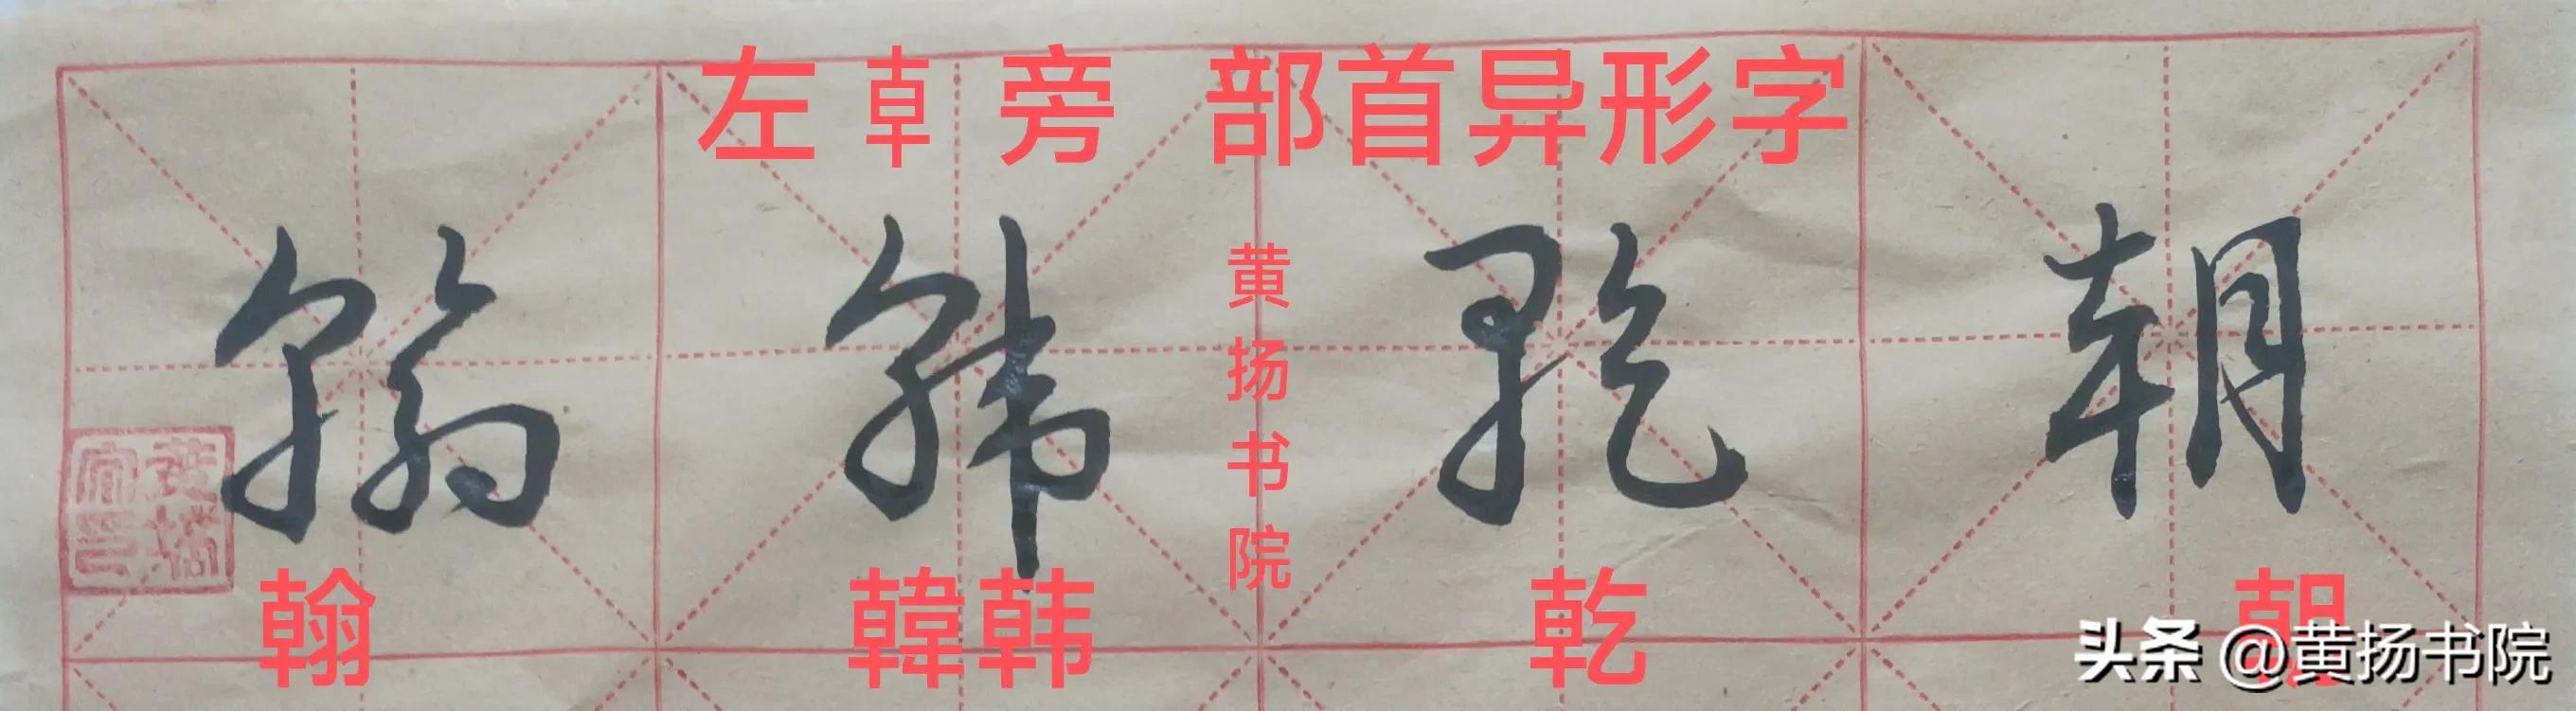 左𠦝旁 部首异形字
翰 韩 乾 朝
黄扬书院
翰 韓韩 乾 朝
头条 @黄扬书院